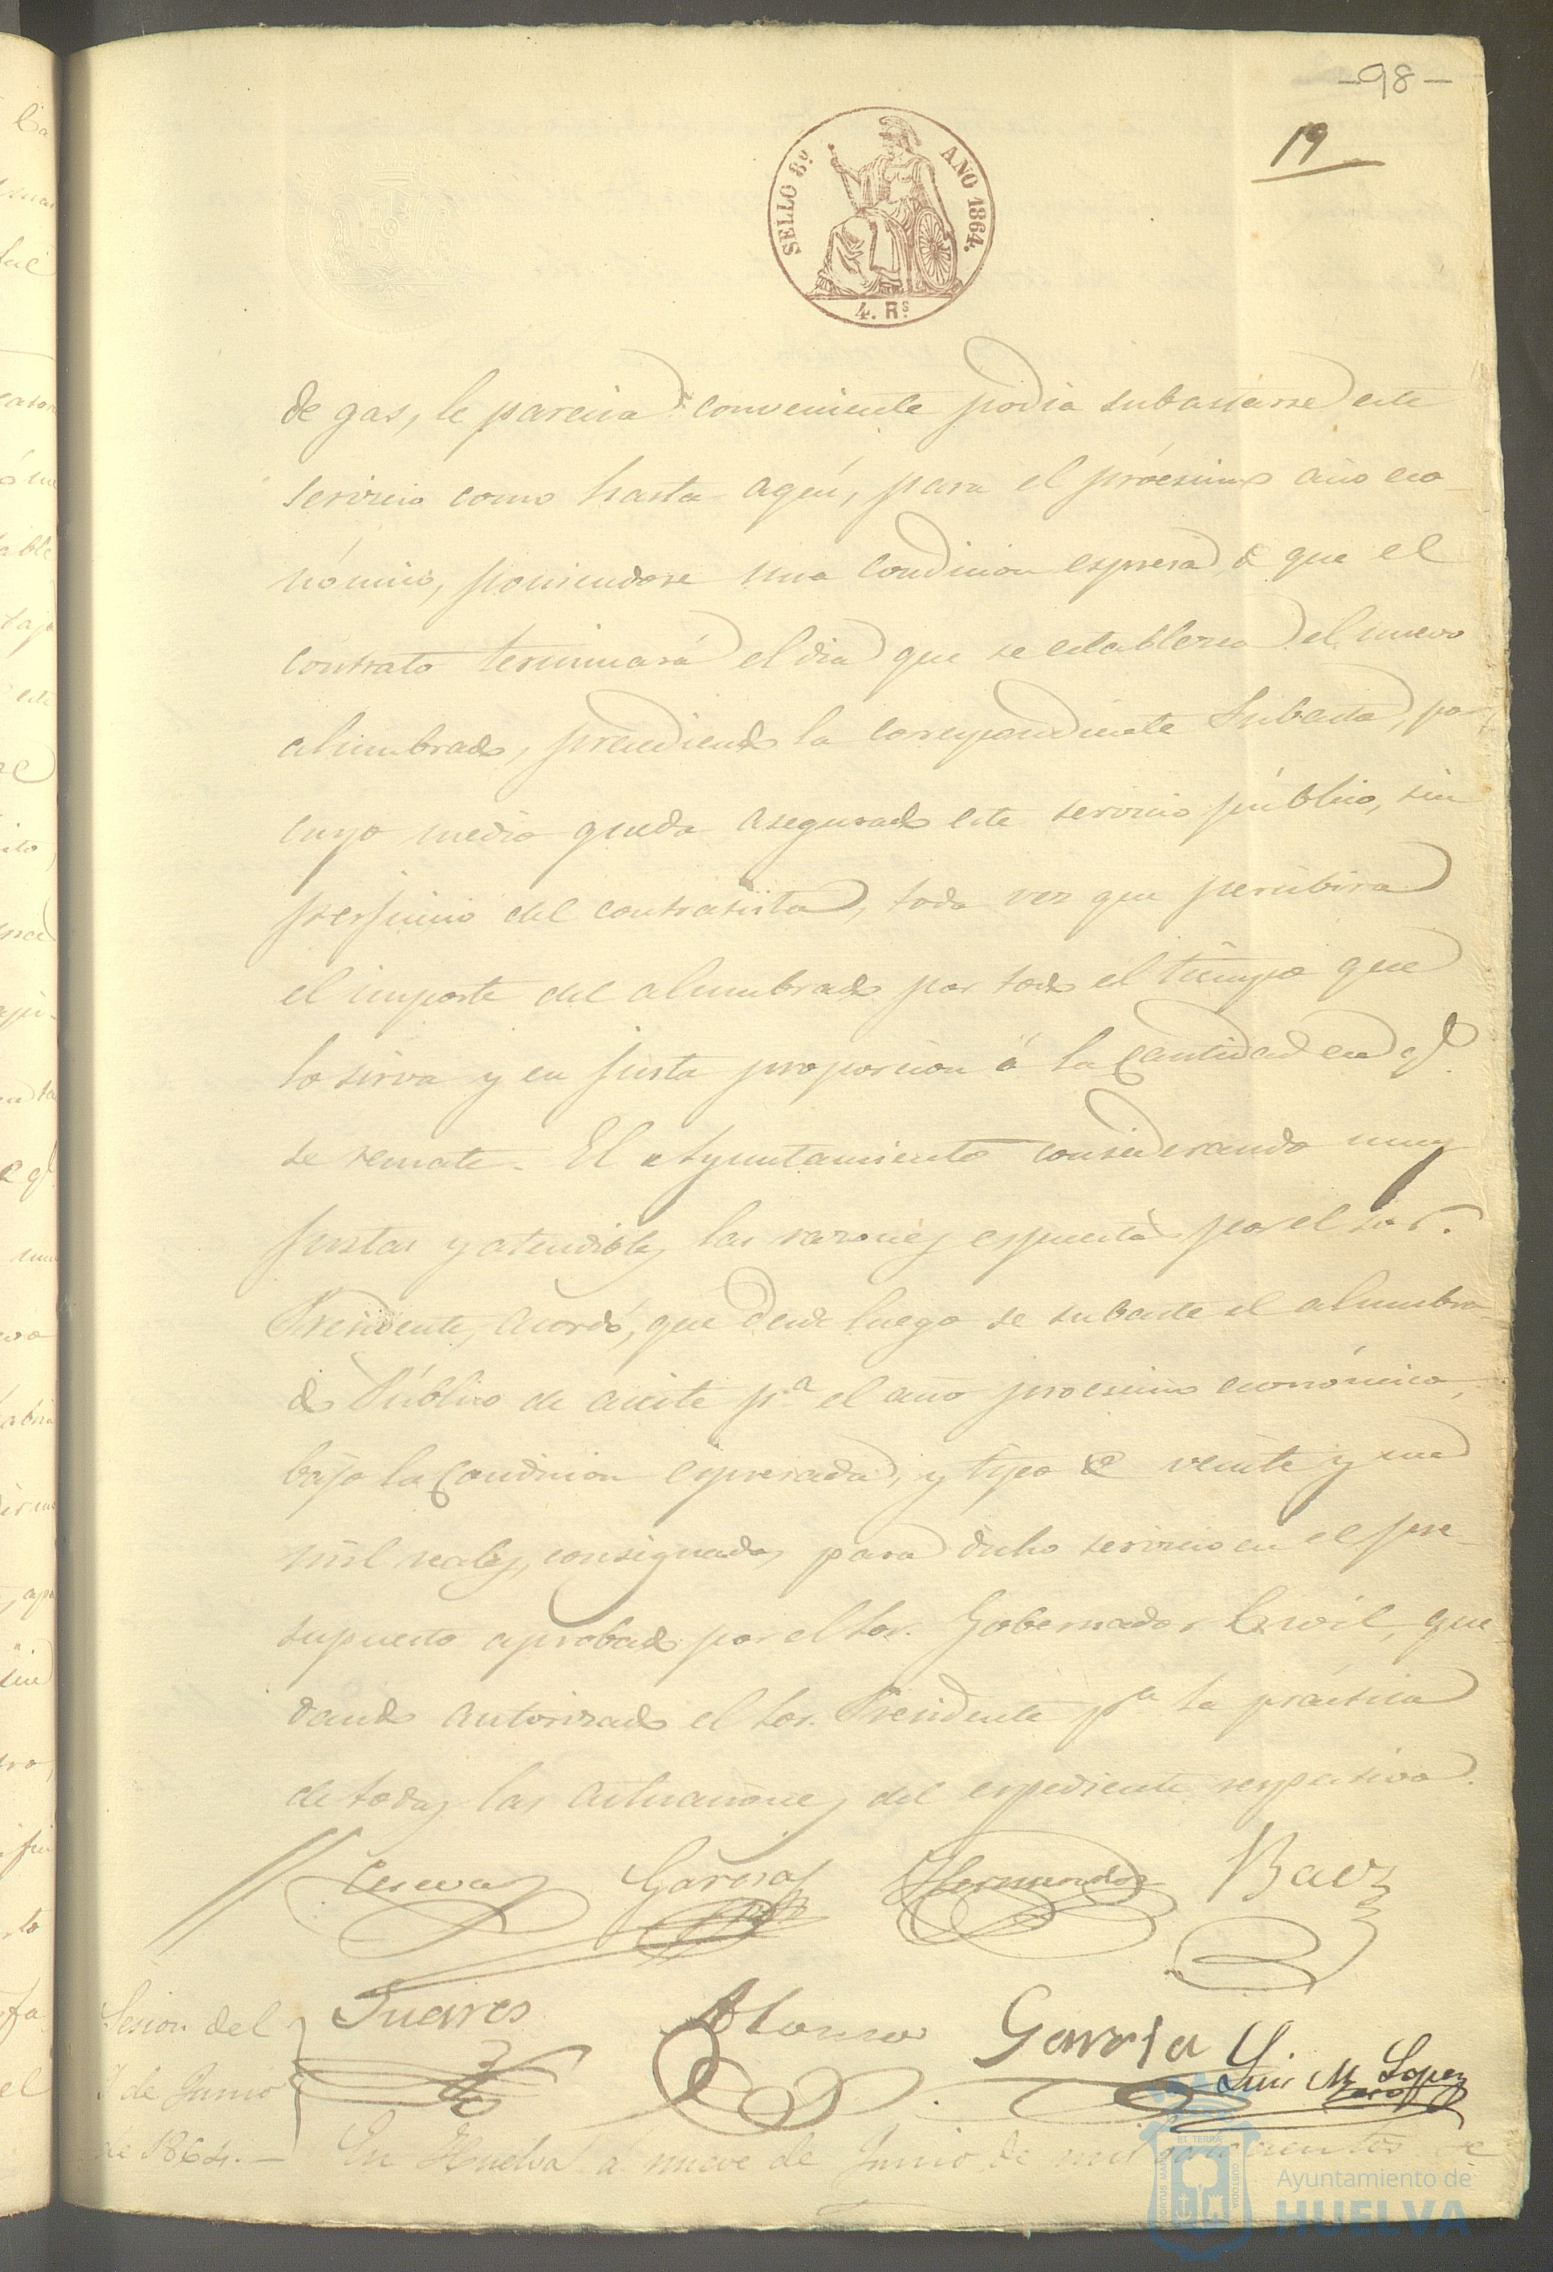 -98-
19
SELLO 8.º AÑO 1864.
4. Rs.
de gas, le parecia conveniente podia subastarse este
servicio como hasta aqui, para el procsimo año eco-
nómico, poniendose una condicion espresa de que el
contrato terminará el dia que se establezca el nuevo
alumbrado, precediendo la correspondiente subasta, por
cuyo medio queda asegurado este servicio público, sin
perjuicio del contratista, toda vez que percibira
el importe del alumbrado por todo el tiempo que
lo sirva y en justa proporcion á la cantidad en q.e
se remate. El Ayuntamiento considerando muy
justas y atendibles las razones espuestas por el Sor.
Presidente, acordó, que desde luego se subaste el alumbra-
do Público de aceite p.a el año procsimo económico,
bajo la condicion espresada, y tipo de veinte y un
mil reales, consignados para dicho servicio en el pre-
supuesto aprobado por el Sor. Gobernador Civil, que
dando autorizado el Sor. Presidente p.a la práctica
de todas las actuaciones del espediente respectivo.
Cuevas Garcia Hernandez Baez
Suares Alonso Garcia Luis M. Lopez
Sesion del
9 de Junio
de 1864.-
En Huelva á nueve de Junio de mil ochocientos se
PORTUS MARIS ET TERRAE CUSTODIA
Ayuntamiento de
HUELVA